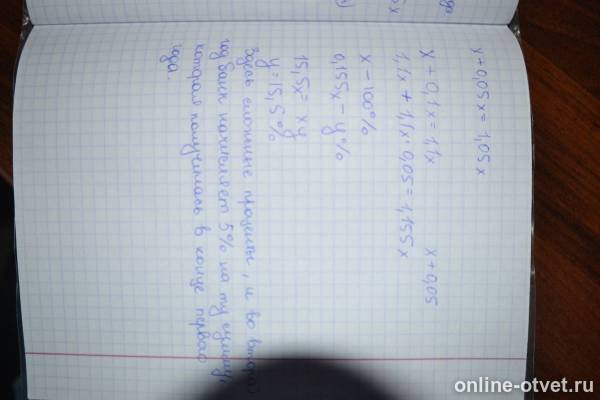 x + 0,05x = 1,05x
x + 0,1x = 1,1x x + 0,05
1,1x + 1,1x · 0,05 = 1,155x
x – 100%
0,155x – y%
15,5x = xy
y = 15,5%
Здесь сложные проценты, и во второй
год банк начисляет 5% на ту сумму,
которая получилась в конце первого
года.
online-otvet.ru